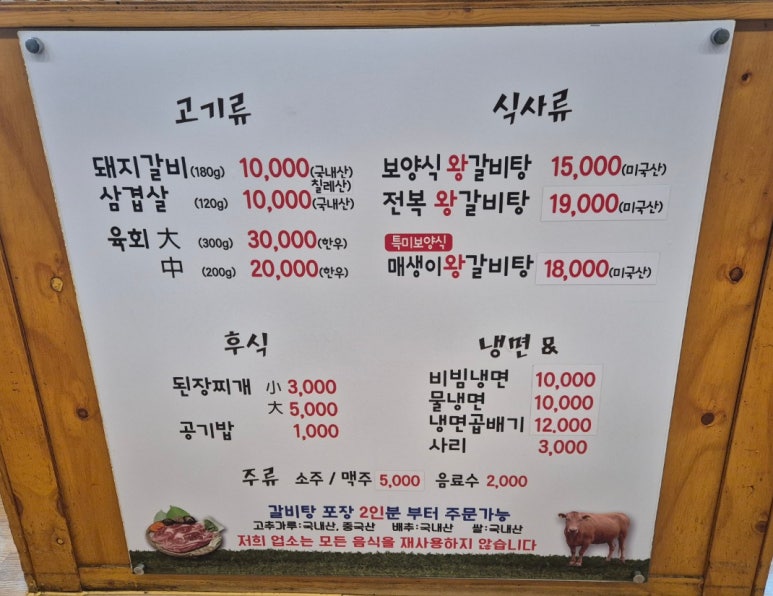 고기류
돼지갈비(180g) 10,000(국내산)
칠레산)
삼겹살 (120g) 10,000(국내산)
육회 大 (300g) 30,000(한우)
中 (200g) 20,000(한우)
식사류
보양식 왕갈비탕 15,000(미국산)
전복 왕갈비탕 19,000(미국산)
특미보양식
매생이왕갈비탕 18,000(미국산)
후식
된장찌개 小 3,000
大 5,000
공기밥 1,000
냉면 &
비빔냉면 10,000
물냉면 10,000
냉면곱배기 12,000
사리 3,000
주류 소주 / 맥주 5,000 음료수 2,000
갈비탕 포장 2인분 부터 주문가능
고추가루:국내산, 중국산 배추:국내산 쌀:국내산
저희 업소는 모든 음식을 재사용하지 않습니다